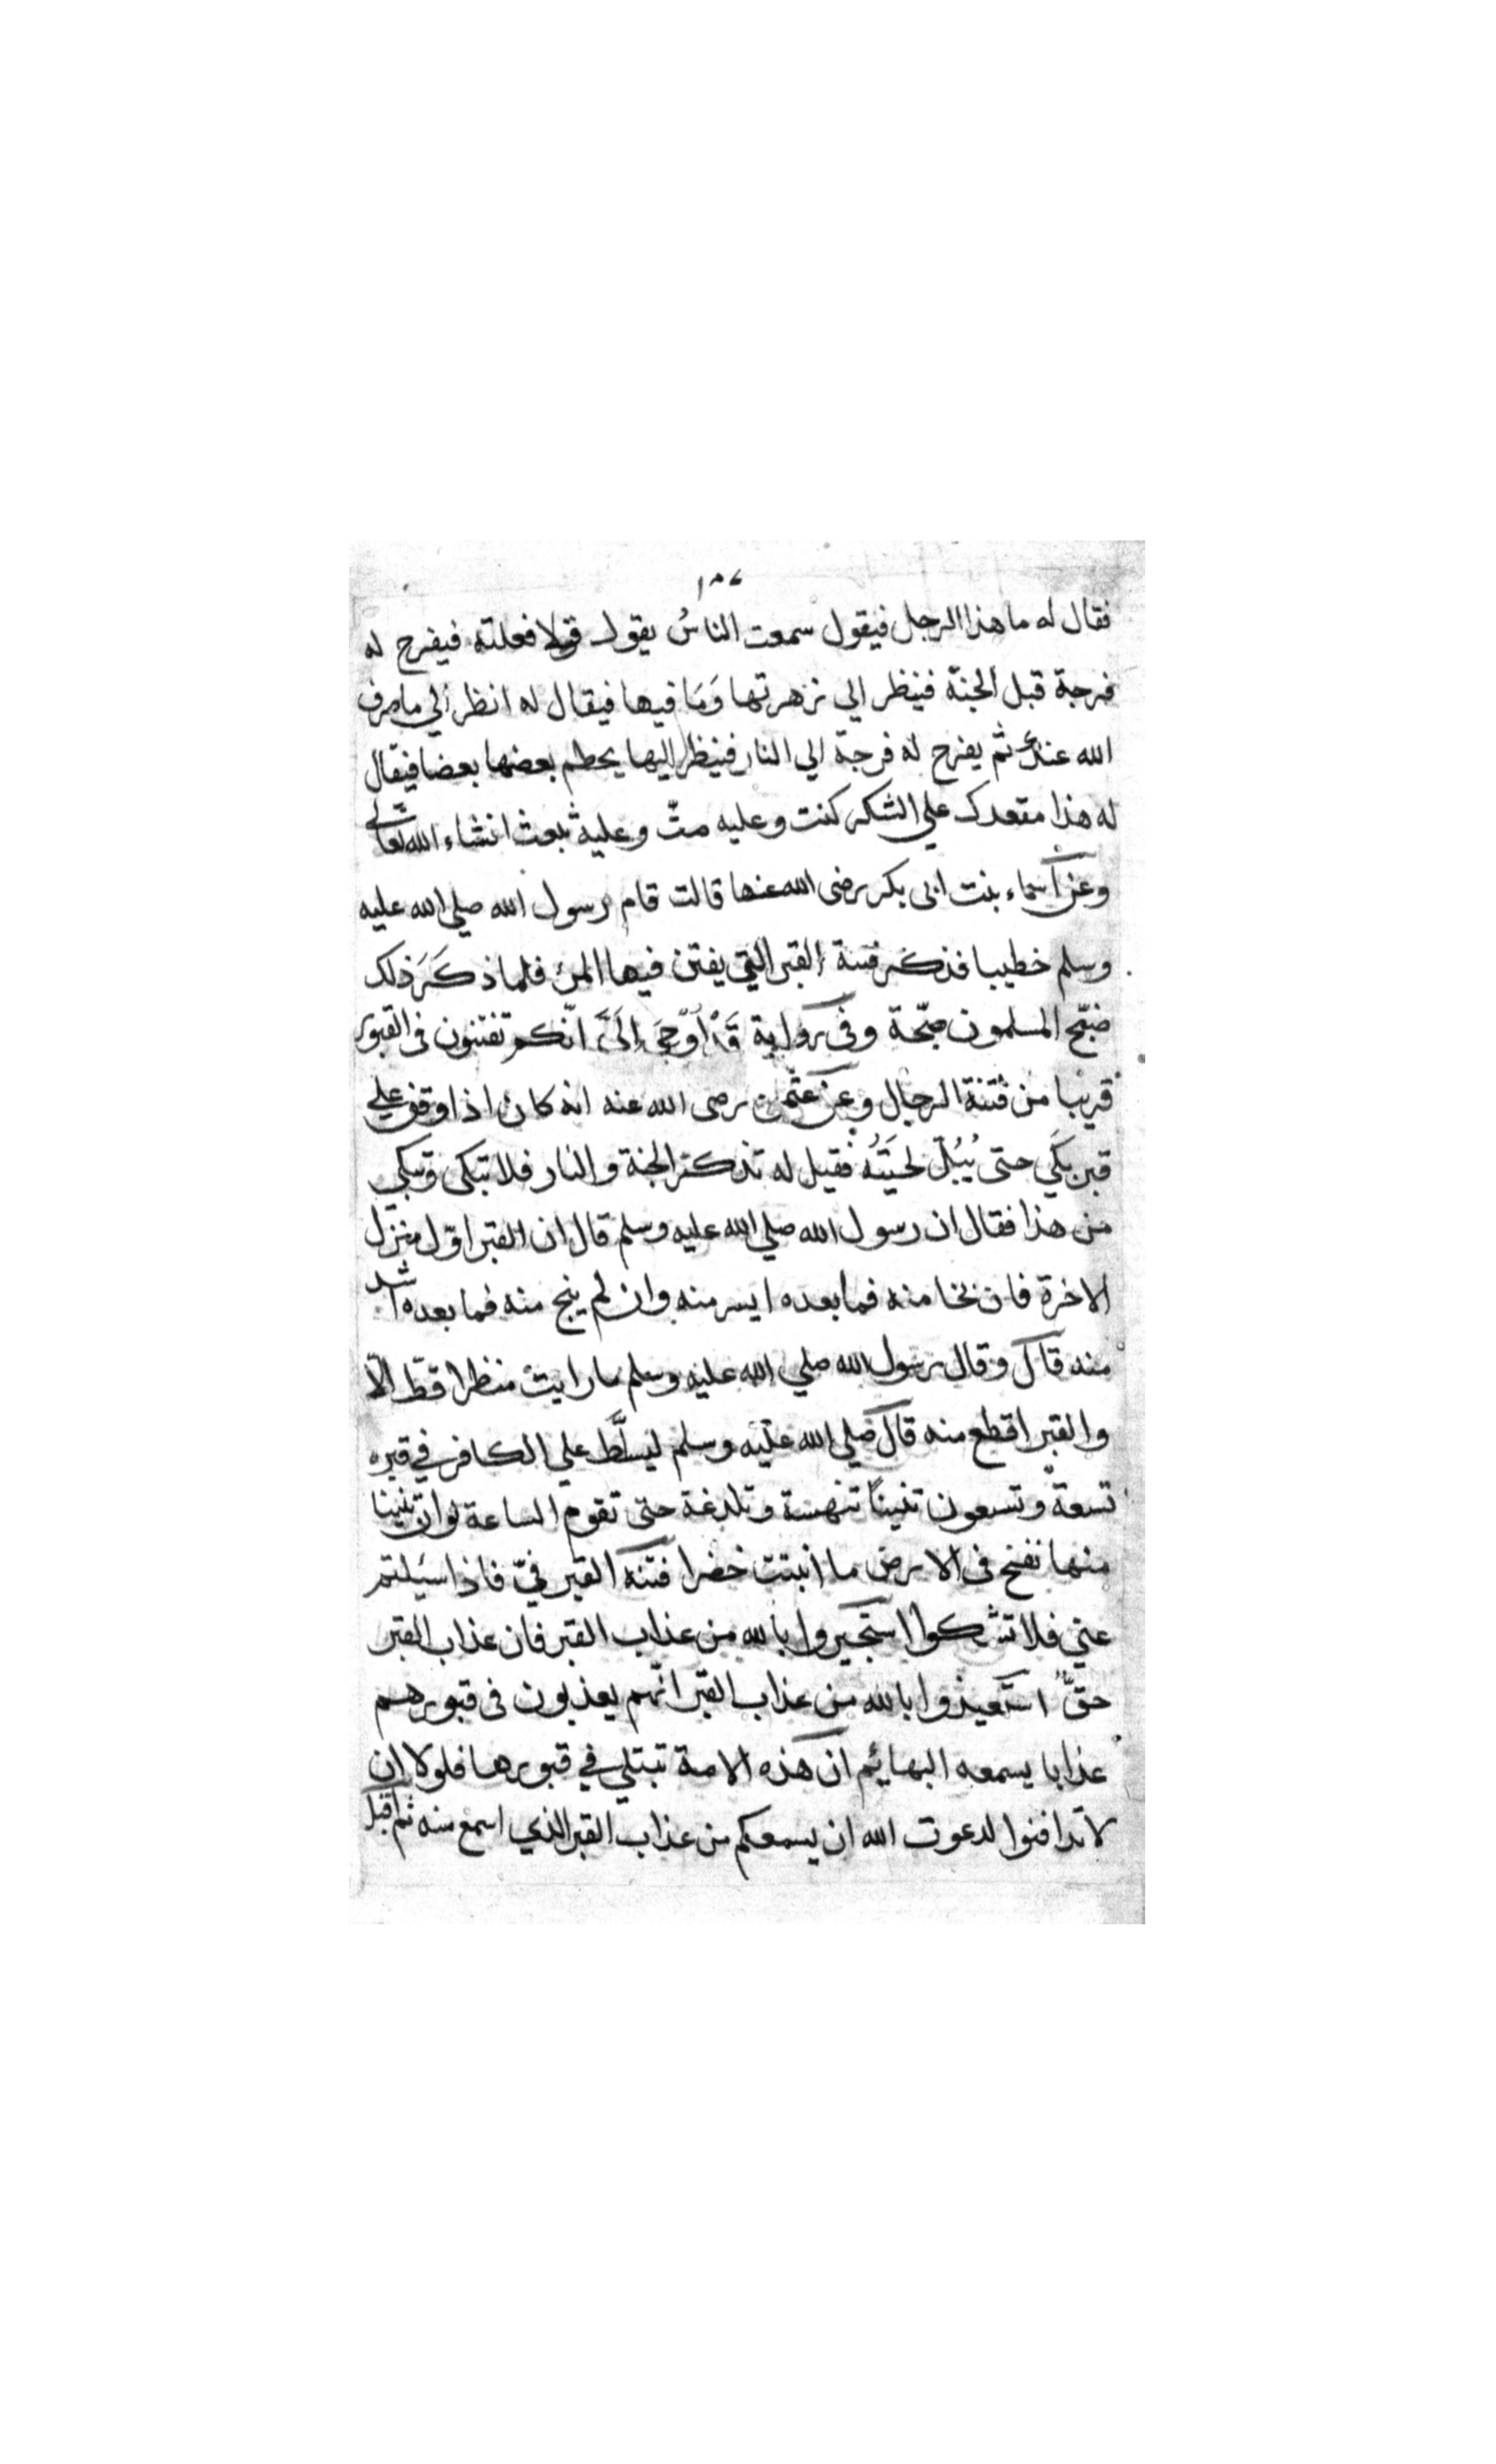 ١٥٧
فقال له ما هذا الرجل فيقول سمعت الناسُ يقول قولا فعلته فيفرج له
فرجة قبل الجنة فينظر الي نرهرتها وَمَا فيها فيقال له انظر الي ما صرف
الله عنك ثم يفرج له فرجة الي النار فينظر اليها يحطم بعضها بعضا فيقال
له هذا مقعدك علي الشك كنت وعليه متّ وعليه تبعث انشاء الله تعالي
وعن اسماء بنت ابى بكر رضى الله عنها قالت قام رسول الله صلي الله عليه
وسلم خطيبا فذكر فتنة القبر التي يفتن فيها المرء فلما ذكَرَ ذلك
ضجّ المسلمون ضجّة وفى رواية قَدْ اُوحِىَ اِلَىَّ انّكم تفتنون فى القبور
قريبا من فتنة الرجال وعن عثمن رضى الله عنه انه كان اذا وقف علي
قبر بكَي حتى يُبُلّ لحيَتُه فقيل له تذكر الجنة والنار فلا تبكى وتبكي
من هذا فقال ان رسول الله صلي الله عليه وسلم قال ان القبر اوّل منزل
الاخرة فان نجا منه فما بعده ايسر منه وان لم ينج منه فما بعده اشد
منه قال وقال رسول الله صلي الله عليه وسلم ما رايت منظرا قطّ الّا
والقبر اقطع منه قال صلي الله عليه وسلم ليسلَّط علي الكافر في قبره
تسعة وتسعون تنيناً تنهسة وتلدغة حتى تقوم الساعة لو ان تنينا
منها نفخ فى الارض ما انبتت خضرا فتنه القبر فيّ فاذا سيَلتم
عني فلا تشكوا استجيروا بالله من عذاب القبر فان عذاب القبر
حقّ استعيذوا بالله من عذاب القبر انهم يعذبون فى قبورهم
عذابا يسمعه البهائم ان هذه الامة تبتلي في قبورها فلولا ان
لا تدافنوا لدعوت الله ان يسمعكم من عذاب القبر الذي اسمع منه ثم اقبل